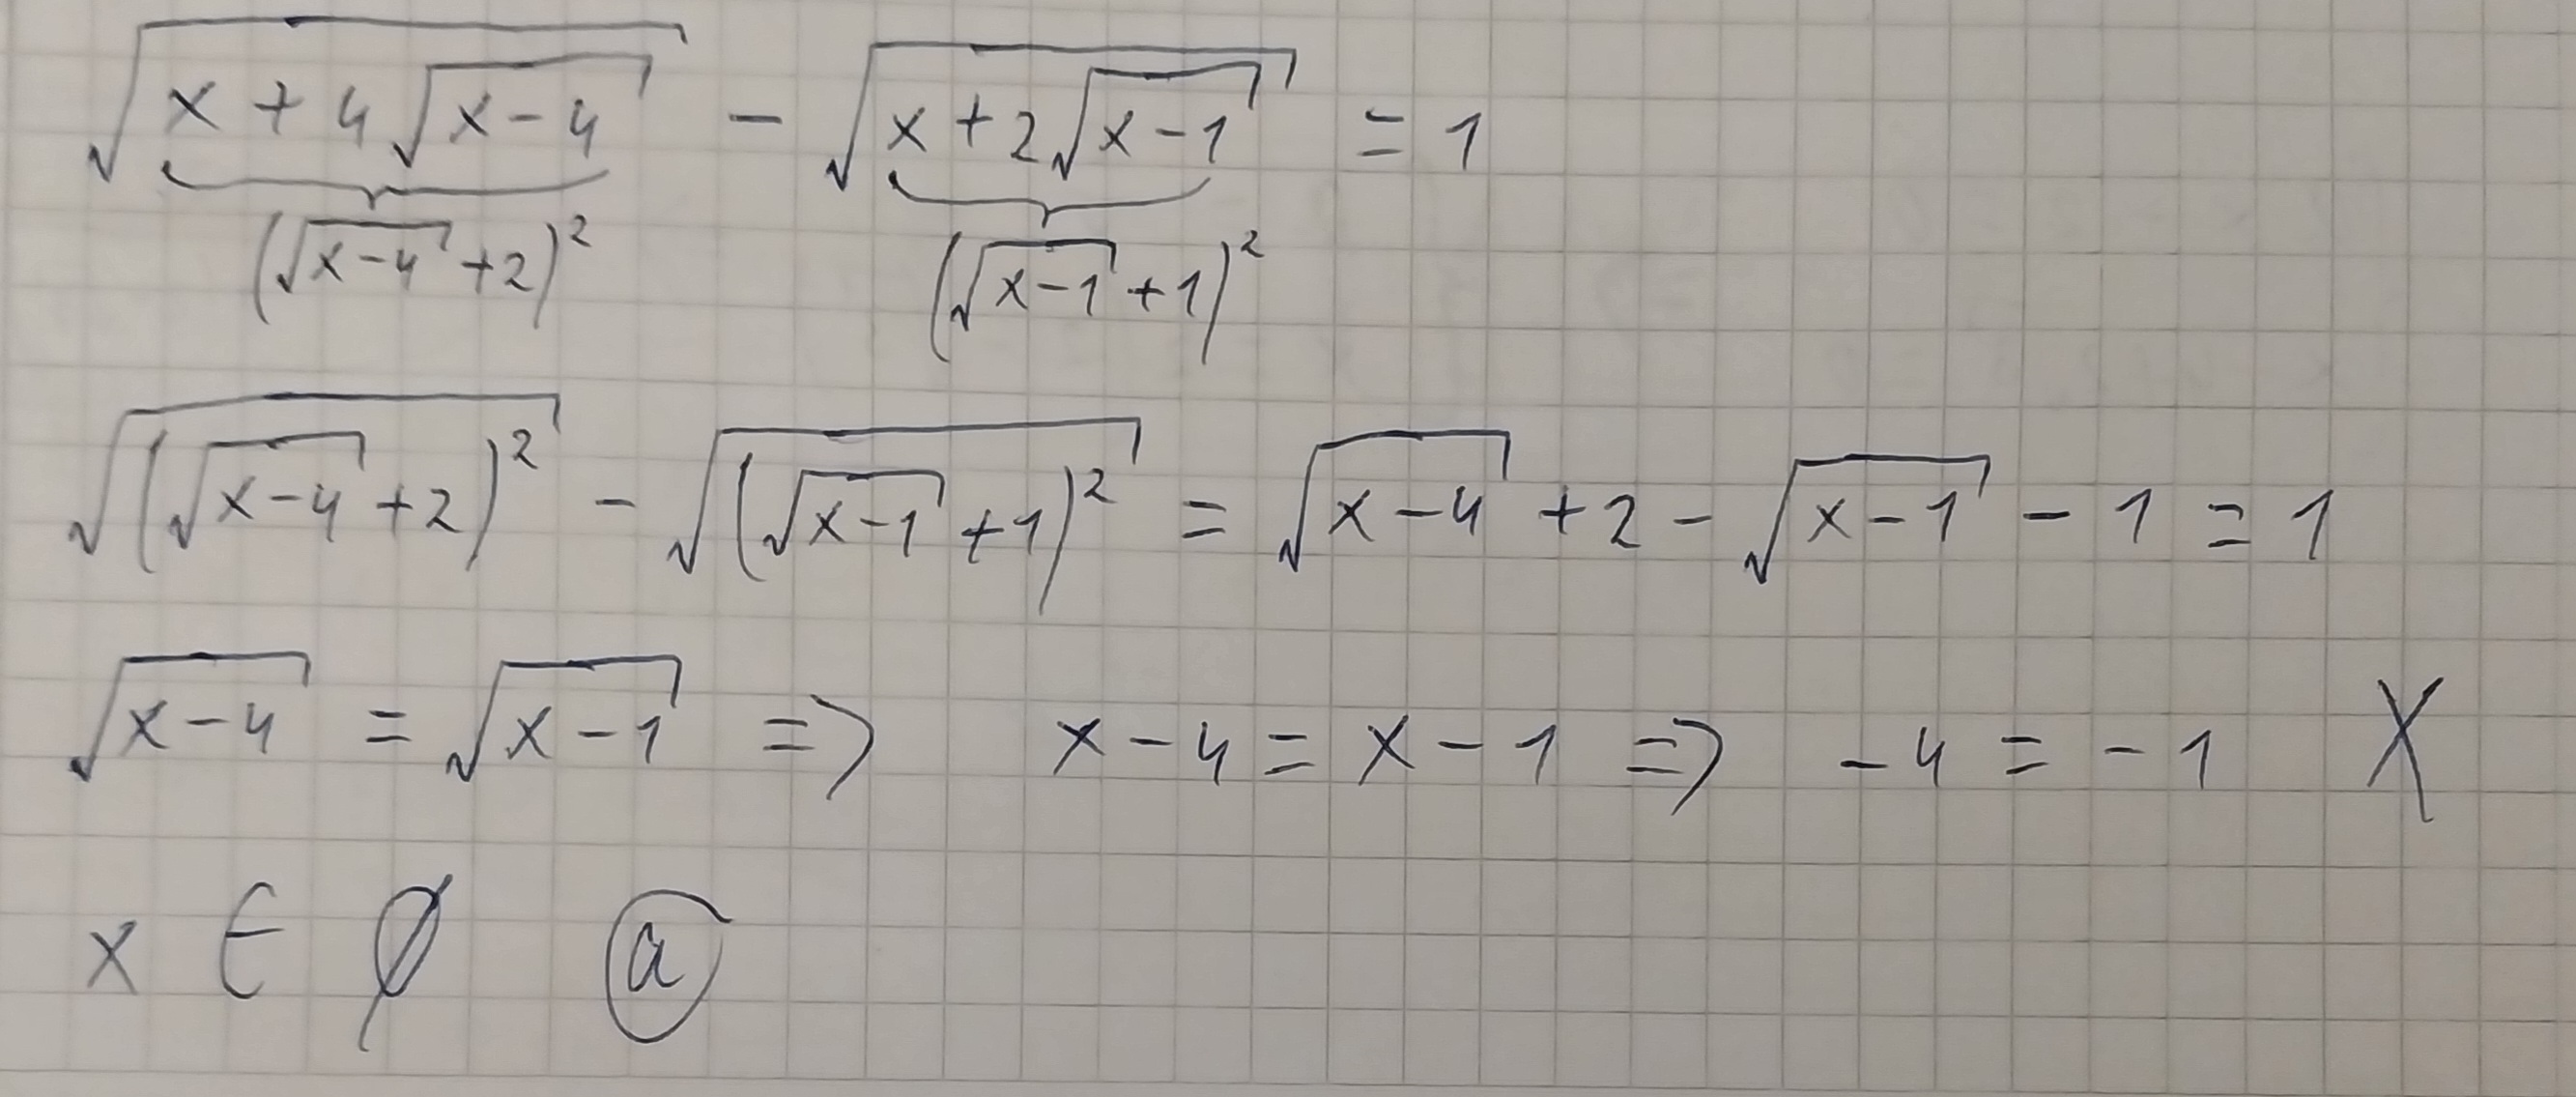 √(x + 4√(x - 4)) - √(x + 2√(x - 1)) = 1
(√(x - 4) + 2)² (√(x - 1) + 1)²
√((√(x - 4) + 2)²) - √((√(x - 1) + 1)²) = √(x - 4) + 2 - √(x - 1) - 1 = 1
√(x - 4) = √(x - 1) => x - 4 = x - 1 => -4 = -1 X
x ∈ ∅ ⓐ